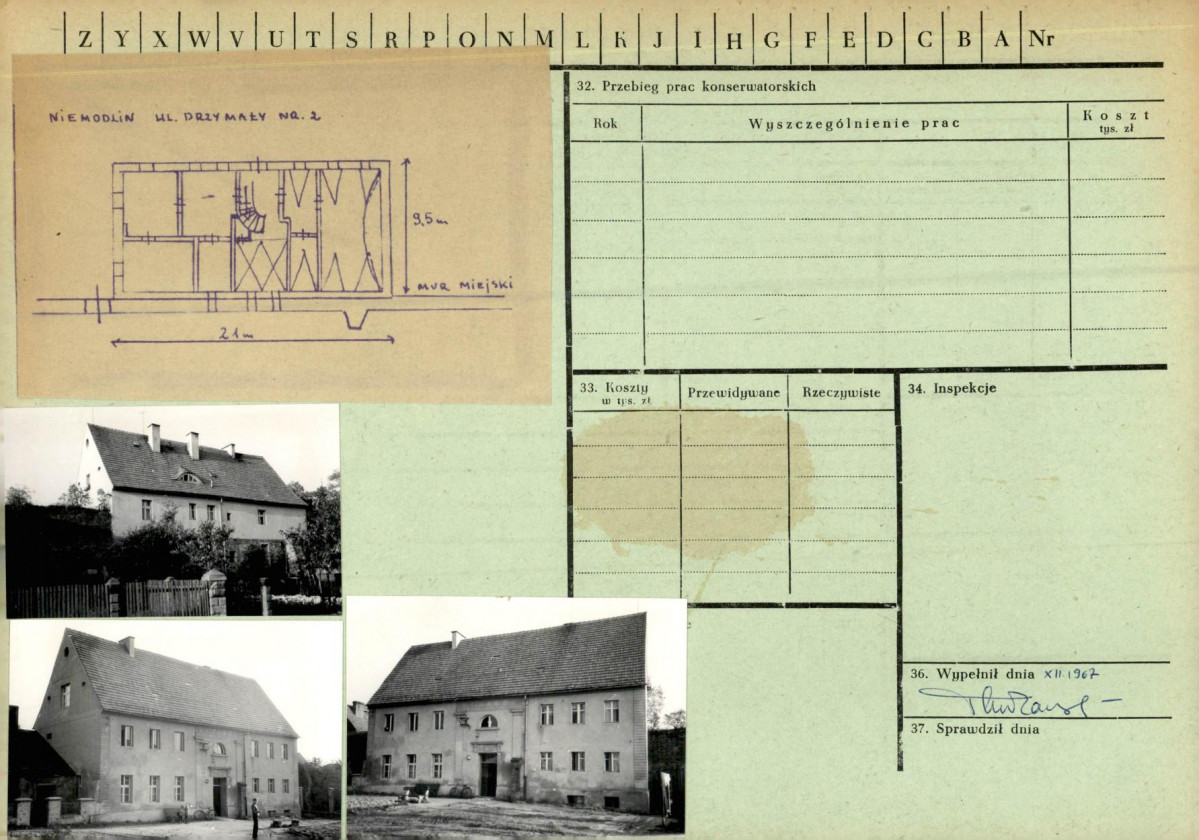 Z Y X W V U T S R P O N M L K J I H G F E D C B A Nr
NIEMODLIN UL. DRZYMAŁY NR. 2
9,5m
MUR MIEJSKI
21m
32. Przebieg prac konserwatorskich
Rok
Wyszczególnienie prac
Koszt
tys. zł
33. Koszty
w tys. zł
Przewidywane
Rzeczywiste
34. Inspekcje
36. Wypełnił dnia XII.1967
37. Sprawdził dnia